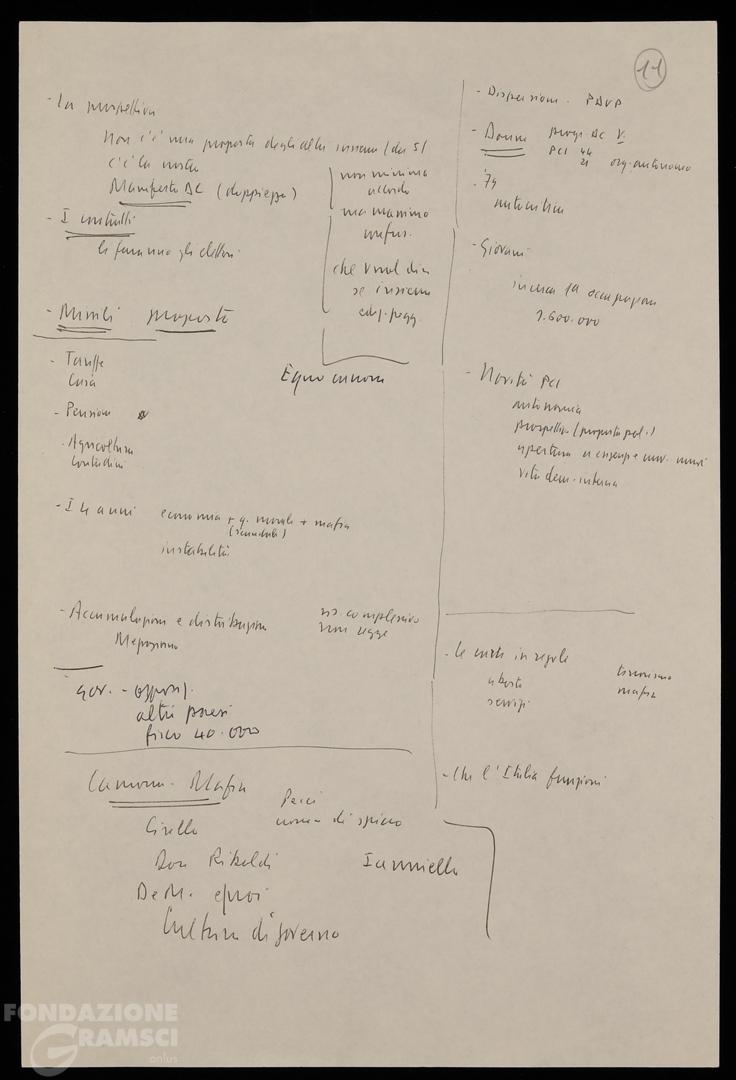 11
- La prospettiva
Non c'è una proposta degli altri insieme (dei 5)
c'è la nostra
Manifesto DC (doppiezza)
- I contratti
li faranno gli elettori
non minimo
accordo
ma massimo
che vuol dire
se insieme
Equo canone
- Minili proposta
- Tariffe
Casa
- Pensioni
- Agricoltura
contadini
- I 4 anni economia + q. morale + mafia
(scandali)
instabilità
- Accumulazione e distribuzione
Mezzogiorno
no complessivo
non legge
gov. - oppos.
altri paesi
fisco 40.000
Camorra - Mafia
Cirillo
Don Riboldi
De M. e poi
Cultura di governo
uomo di spicco
Ianniello
- Dispersione. PDUP
- Donne progr. DC V.
PCI 44
21 org. autonomo
- 74
autocritica
- Giovani
in cerca 1ª occupazione
1.600.000
- Novità PCI
autonomia
prospettiva (proposta pol.)
apertura a esigenze mov. nuovi
vita dem. interna
- Le carte in regola
terrorismo
mafia
servizi
- Che l'Italia funzioni
FONDAZIONE
GRAMSCI
onlus